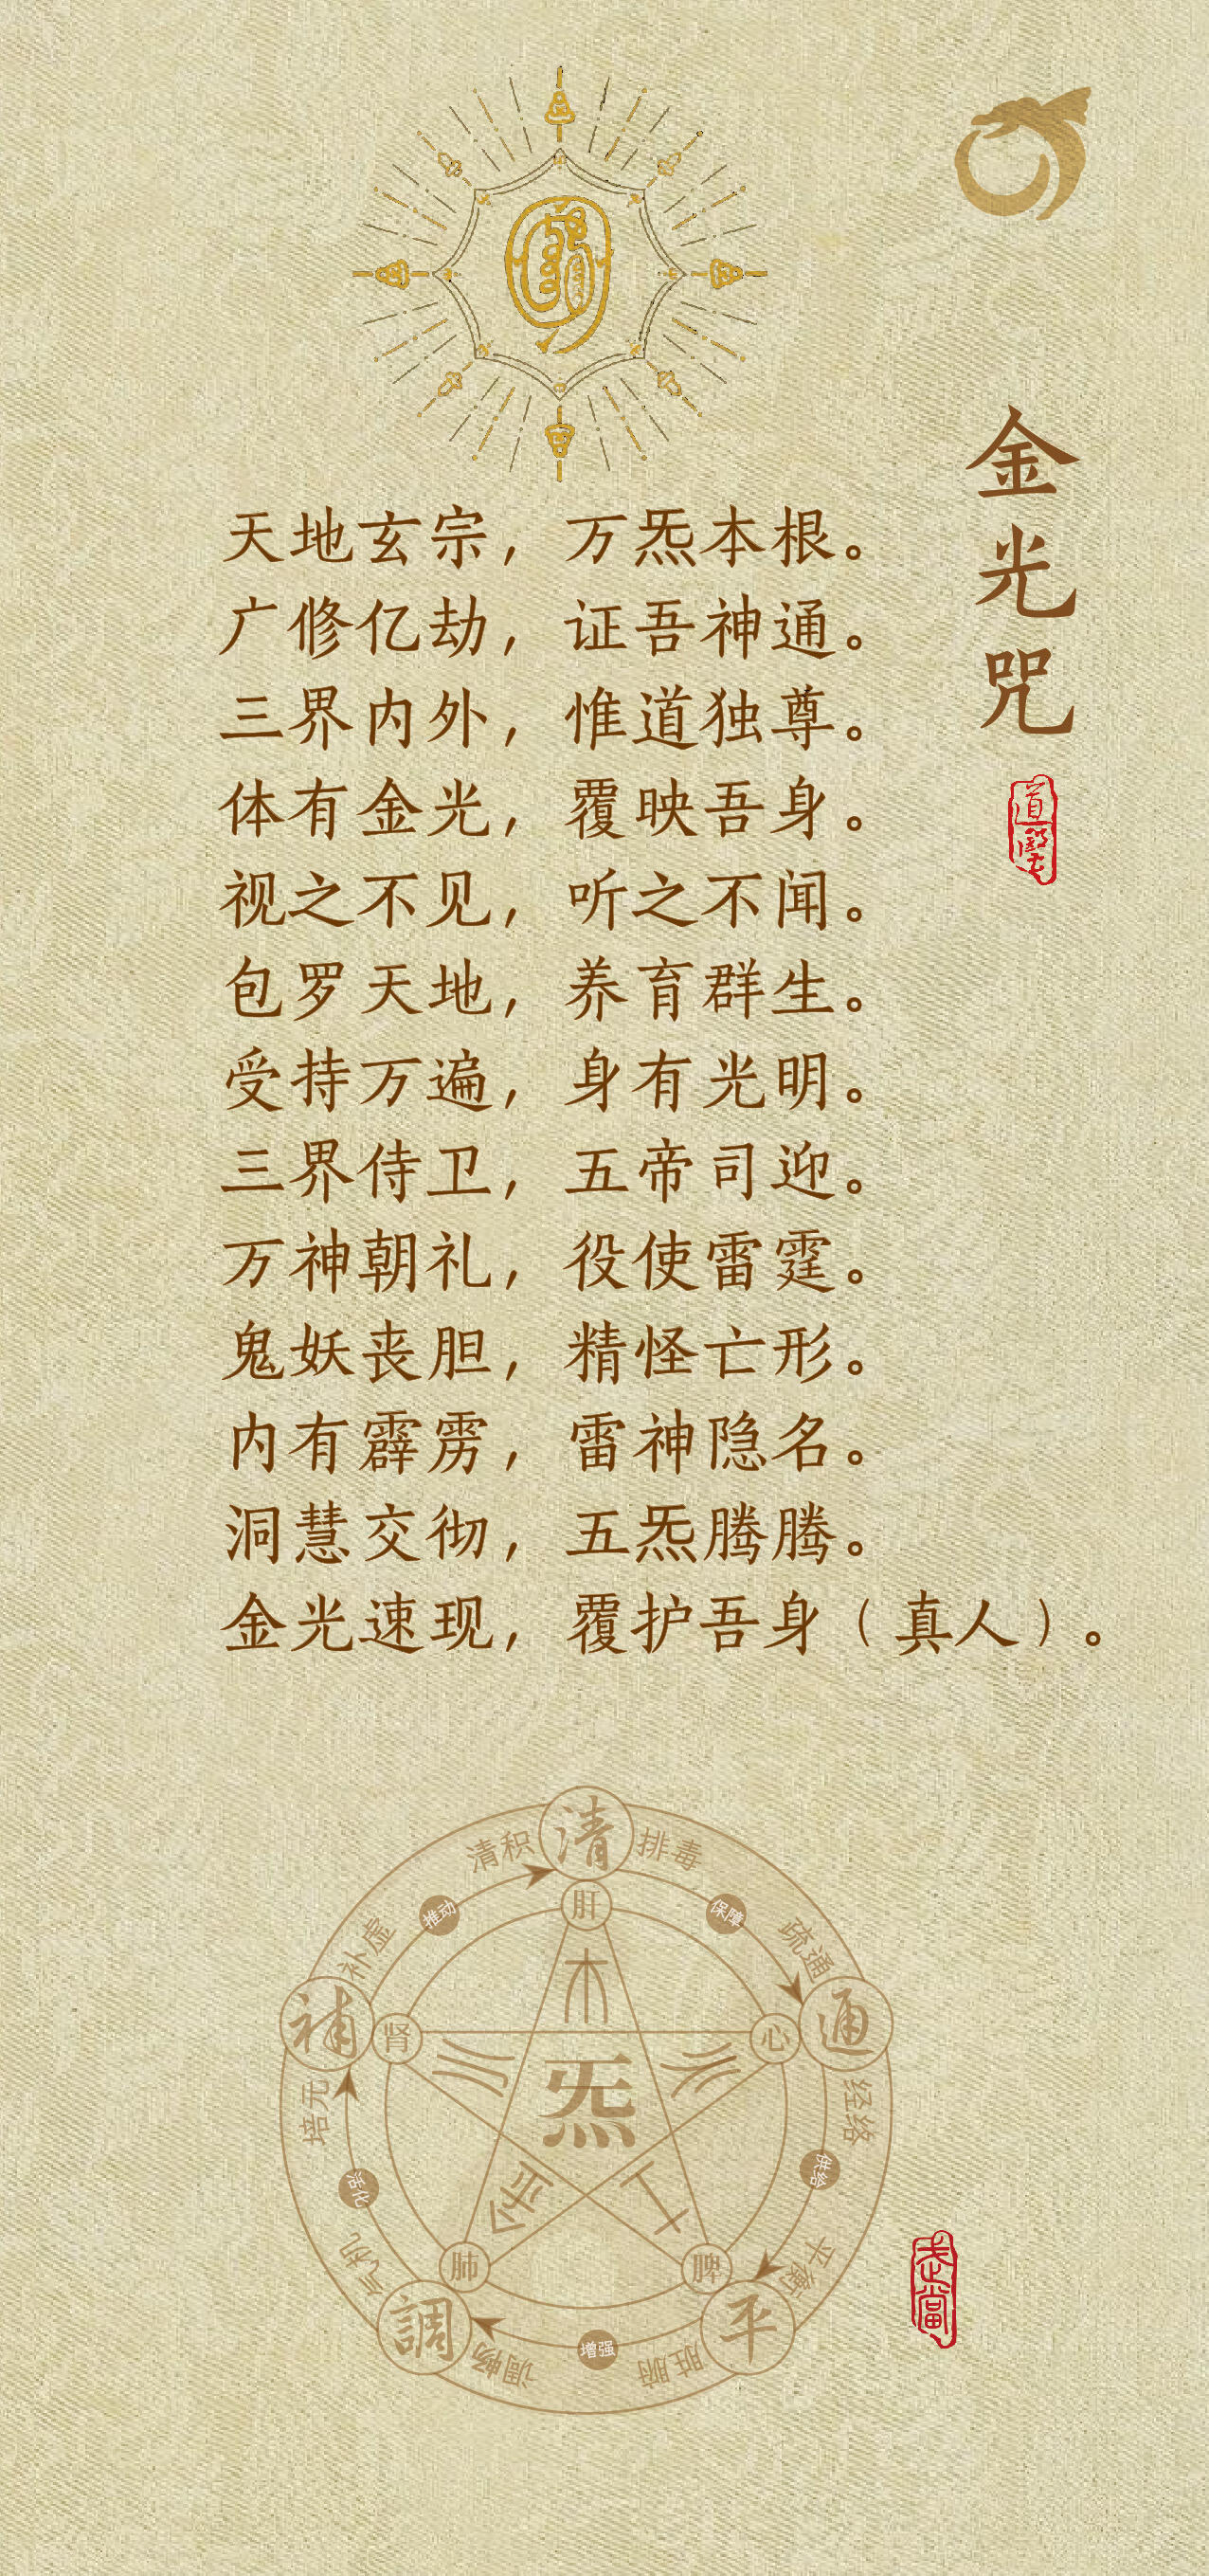 金光咒
道醫
天地玄宗，万炁本根。
广修亿劫，证吾神通。
三界内外，惟道独尊。
体有金光，覆映吾身。
视之不见，听之不闻。
包罗天地，养育群生。
受持万遍，身有光明。
三界侍卫，五帝司迎。
万神朝礼，役使雷霆。
鬼妖丧胆，精怪亡形。
内有霹雳，雷神隐名。
洞慧交彻，五炁腾腾。
金光速现，覆护吾身（真人）。
清
清积
排毒
肝
推动
保障
补虚
疏通
補
肾
心
通
木
水
火
炁
培元
经络
金
土
活化
供给
气机
平衡
肺
脾
調
平
调畅
增强
脏腑
武當